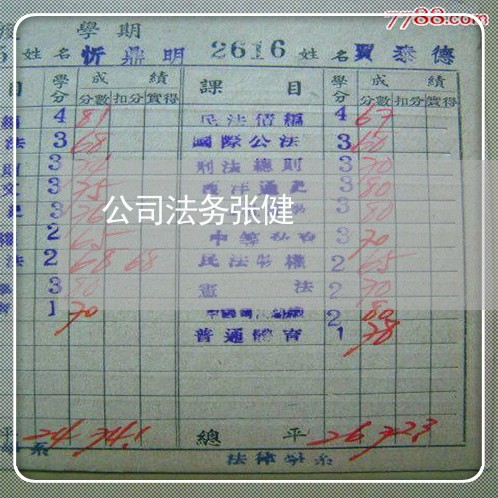 7788.com
學期
姓名 忻鼎明 2616 姓名 賈泰德
目 學分 成績 課目 學分 成績
分數 扣分 實得 分數 扣分 實得
4 81 民法債編 4 67
法 3 68 國際公法 3 60
則 3 刑法總則 3 70
3 75 西洋通史 3 80
3 76 3 80
權 2 65 3 70
法 2 68 68 民法物權 2 65
3 80 憲法 2 70
1 70 2 80
普通體育 1 78
公司法务张健
平 24 74.1 總平 26 72.3
系 法律學系